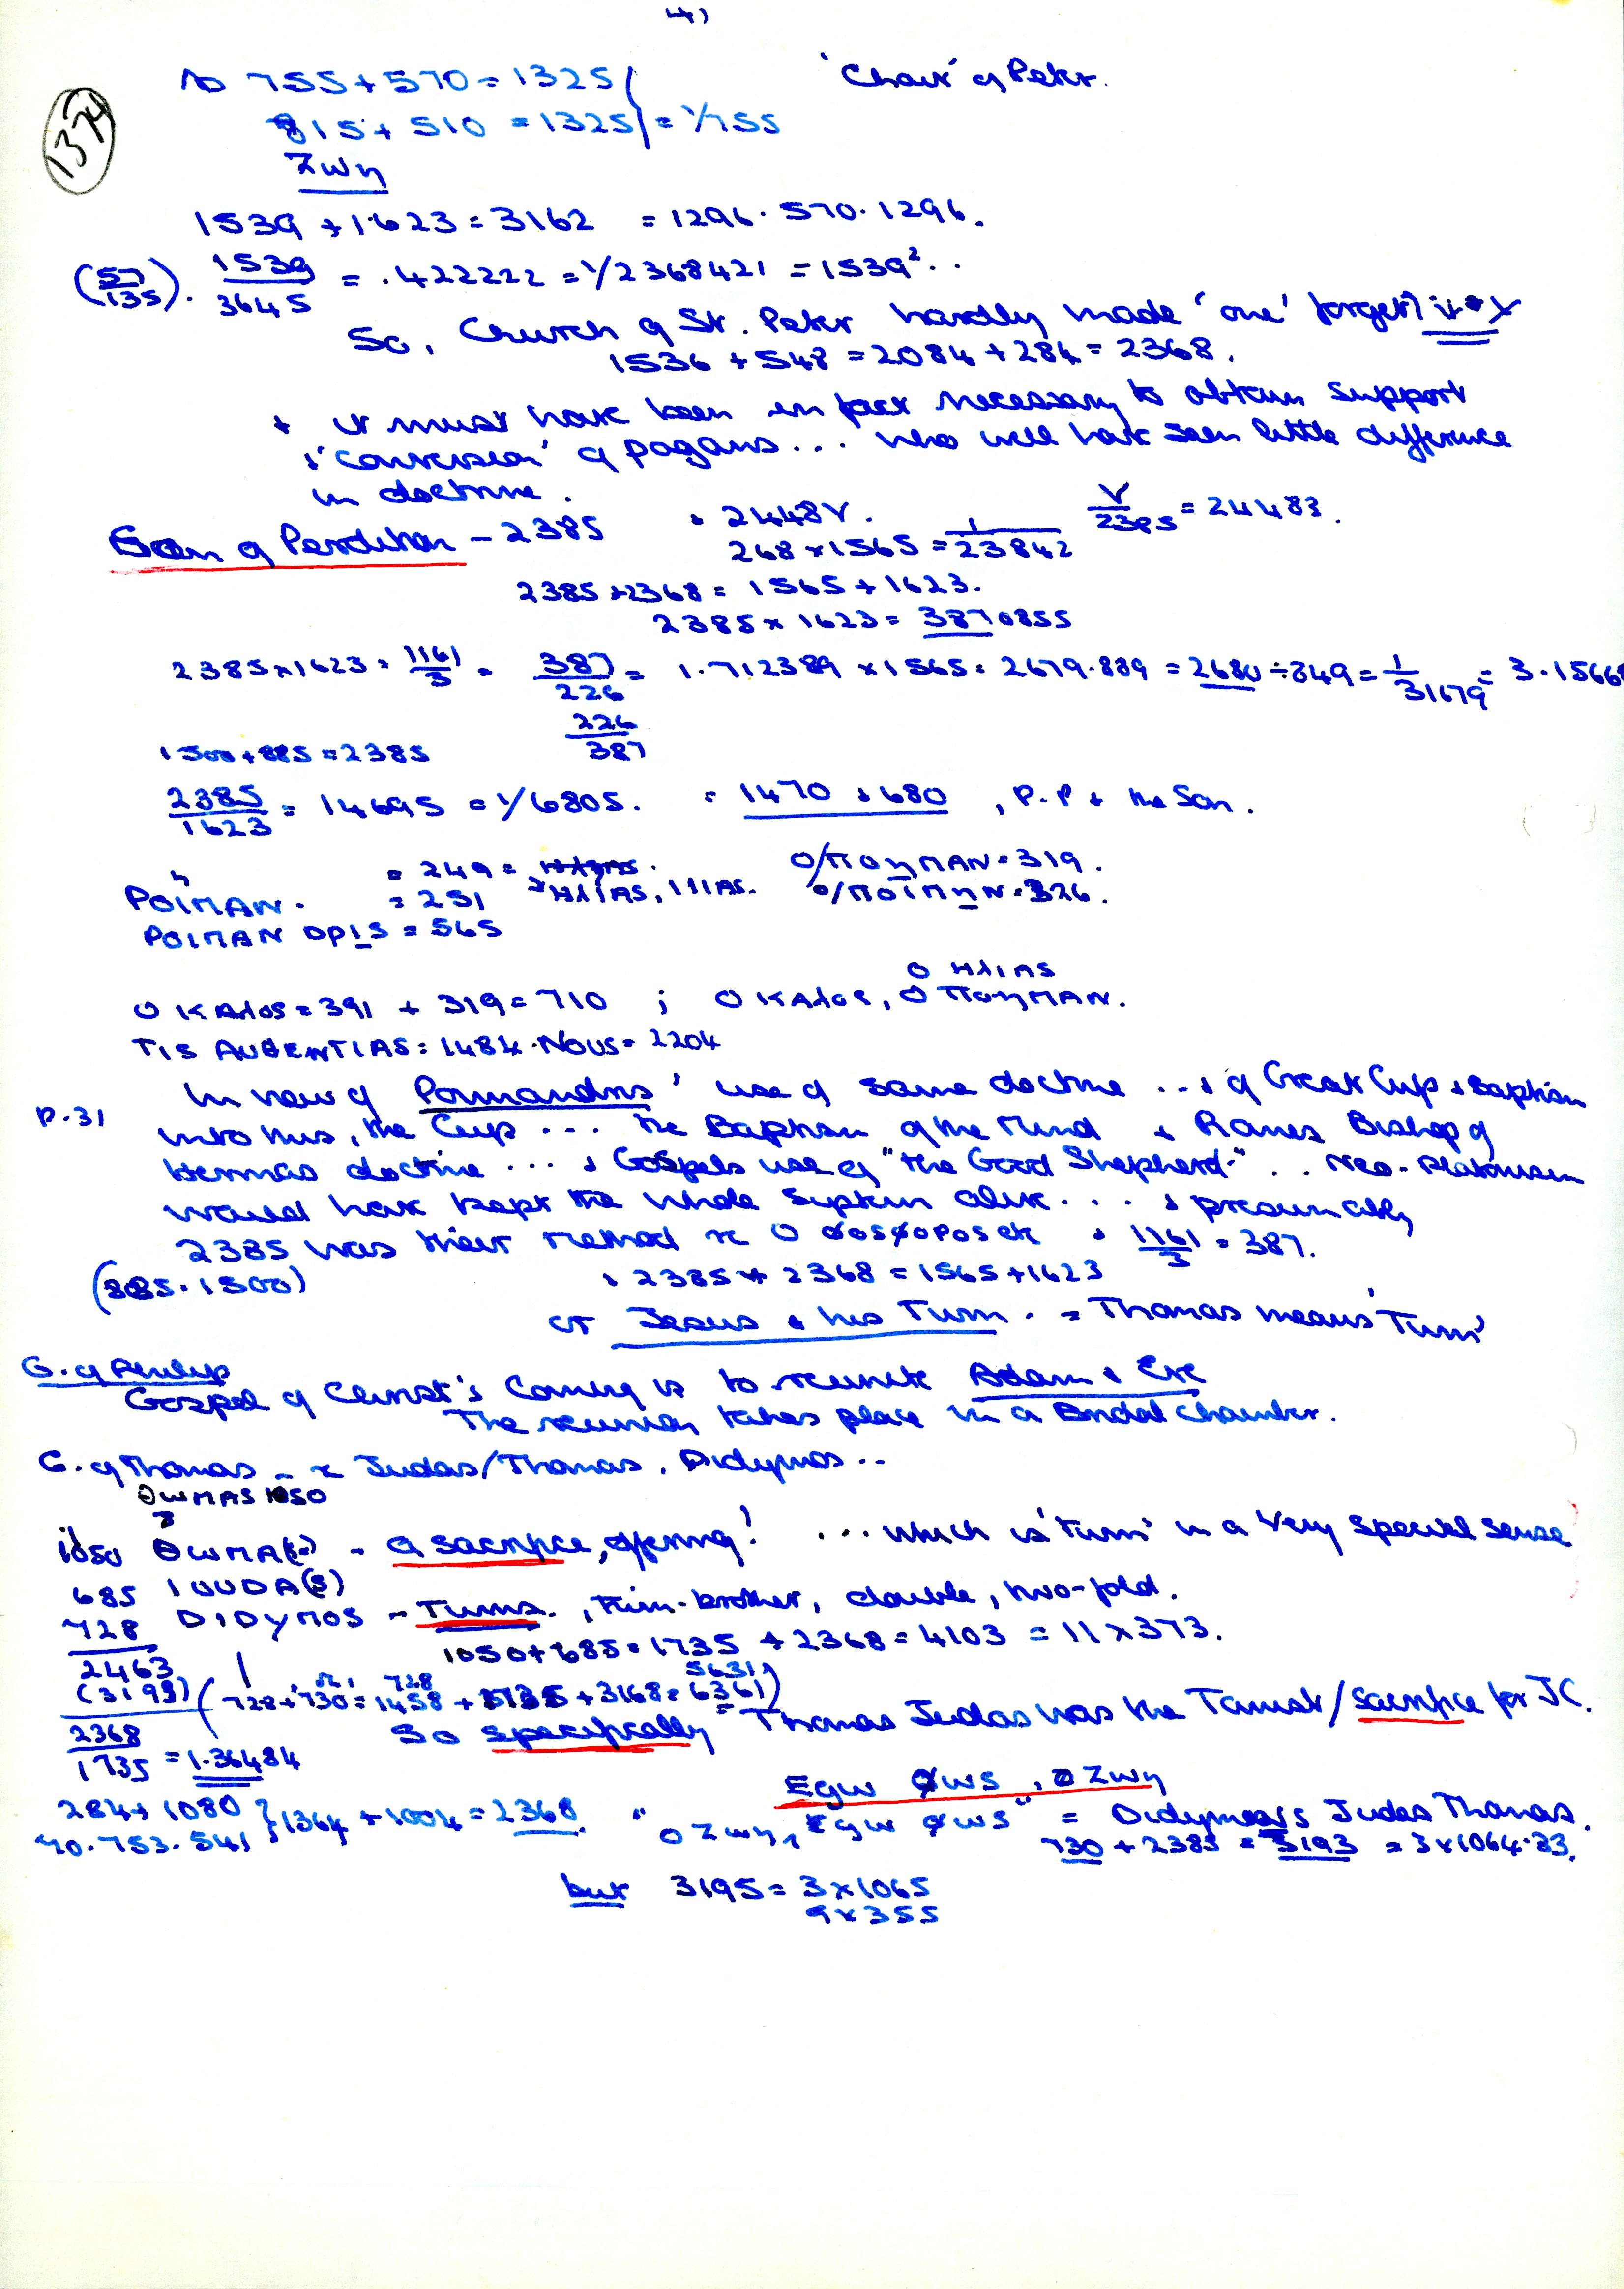 4)
1374
755 + 570 = 1325
'Chair' of Peter.
815 + 510 = 1325 } = 1/755
Zωη
1539 + 1623 = 3162 = 1296. 570. 1296.
(57/135). 1539/3645 = .422222 = 1/2368421 = 1539²..
So, Church of St. Peter hardly made 'one' forget?
1536 + 548 = 2084 + 284 = 2368.
+ it must have been in fact necessary to obtain support
& 'conversion' of pagans... who will have seen little difference
in doctrine.
Son of Perdition - 2385
2448√. √/2385 = 24483.
268 × 1565 = 1/23842
2385 + 2368 = 1565 + 1623.
2385 × 1623 = 3870855
2385 × 1623 = 1161/3 = 387/226 = 1.712389 × 1565 = 2679.889 = 2680 ÷ 849 = 1/31679 = 3.15668
226/387
1500 + 885 = 2385
2385/1623 = 14695 = 1/6805. = 1470 & 680, P.P & the Son.
= 249 =
POIMAN. = 251 HλIAS, IλIAS.
O/ΠOηMAN = 319.
O/ΠOIMηN = 326.
POIMAN DPIS = 565
O HλIAS
O KAλOS = 391 + 319 = 710 ; O KAλOS, O ΠOηMAN.
TIS AUΘENTIAS = 1484. NOUS = 2204
p.31
In view of Poimandres' use of same doctrine ... & of Great Cup & Baptism
into this, the Cup ... the Baptism of the Mind & Romes Bishop of
Hermas doctine ... & Gospels use of "the Good Shepherd" .. Neo-Platonism
would have kept the whole system alive .... & presumably
2385 was their method re O ØOSØOPOS etc & 1161/3 = 387.
(885. 1500)
& 2385 + 2368 = 1565 + 1623
or Jesus & his Twin. = Thomas means 'Twin'
G. of Philip
Gospel of Christ's Coming is to reunite Adam & Eve
The reunion takes place in a Bridal Chamber.
G. of Thomas - re Judas/Thomas, Didymos..
ΘωMAS 1050
1050 ΘωMA(S) - a sacrifice, offering! ... which is 'Twin' in a very special sense
685 IOUDA(S)
728 DIDYMOS - Twins, twin-brother, double, two-fold.
1050 + 685 = 1735 + 2368 = 4103 = 11 × 373.
2463
(3193)
So specifically Thomas Judas was the Tamist/sacrifice for JC.
2368/1735 = 1.36484
Egω Øωs, O Zωη
284 + 1080 } 1364 + 1004 = 2368. "O Zωη, Egω Øωs" = Didymos Judas Thomas.
70. 753. 541
730 + 2385 = 3193 = 3 × 1064.33.
but 3195 = 3 × 1065
9 × 355